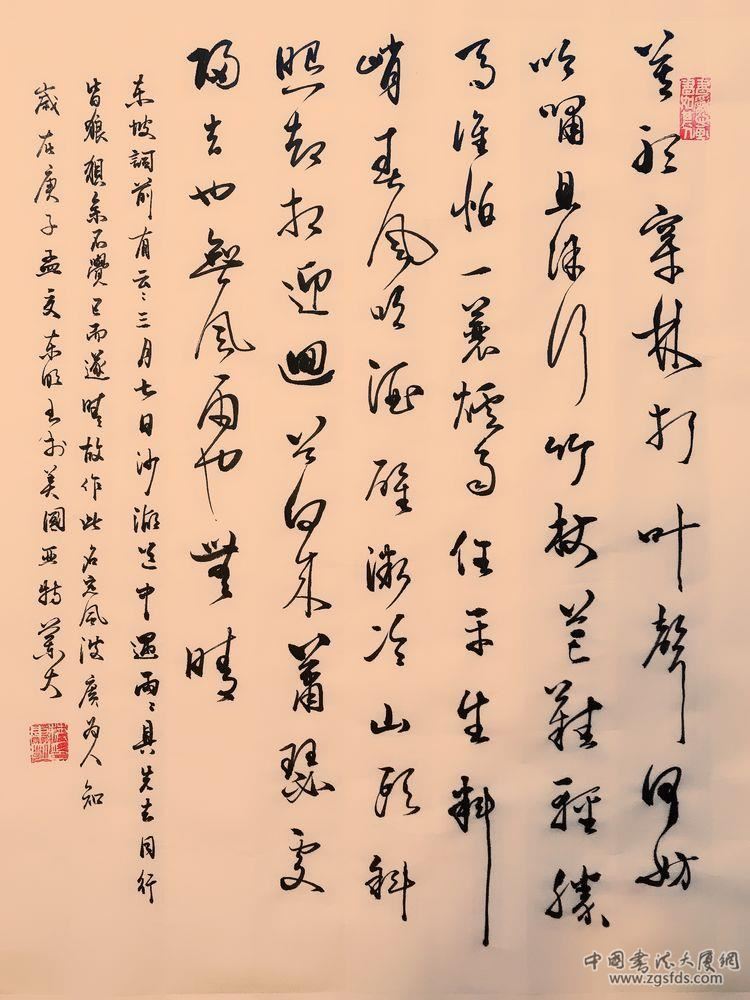 莫聽穿林打叶聲何妨
吟嘯且徐行竹杖芒鞋輕勝
馬誰怕一蓑煙雨任平生料
峭春風吹酒醒微冷山頭斜
照却相迎迴首向来蕭瑟處
歸去也無風雨也無晴
东坡詞前有云三月七日沙湖道中遇雨〻具先去同行
皆狼狽余不覺已而遂晴故作此名定风波廣为人知
歲在庚子孟夏东明书於美國亚特蘭大
中国書法大厦網
www.zgsfds.com